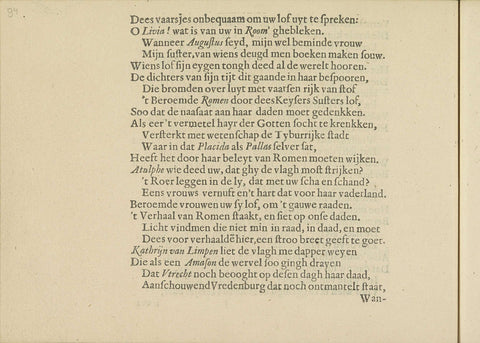 94
Dees vaarsjes onbequaam om uw lof uyt te spreken:
O Livia! wat is van uw in Room' ghebleken.
Wanneer Augustus seyd, mijn wel beminde vrouw
Mijn suster, van wiens deugd men boeken maken souw.
Wiens lof sijn eygen tongh deed al de werelt hooren.
De dichters van sijn tijt dit gaande in haar bespooren,
Die bromden over luyt met vaarsen rijk van stof
't Beroemde Romen door dees Keysers Susters lof,
Soo dat de naasaat aan haar daden moet gedenkken.
Als eer 't vermetel hayr der Gotten socht te krenkken,
Versterkt met wetenschap de Tyburrijke stadt
Waar in dat Placida als Pallas selver sat,
Heeft het door haar beleyt van Romen moeten wijken.
Atulphe wie deed uw, dat ghy de vlagh most strijken?
't Roer leggen in de ly, dat met uw scha en schand?
Eens vrouws vernuft en't hart dat voor haar vaderland.
Beroemde vrouwen uw sy lof, om 't gauwe raaden.
't Verhaal van Romen staakt, en siet op onse daden.
Licht vindmen die niet min in raad, in daad, en moet
Dees voor verhaaldē hier, een stroo breet geeft te goet.
Kathrijn van Limpen liet de vlagh me dapper weyen
Die als een Amason de wervel soo gingh drayen
Dat Vtrecht noch beooght op desen dagh haar daad,
Aanschouwend Vredenburg dat noch ontmantelt staat,
Wan-